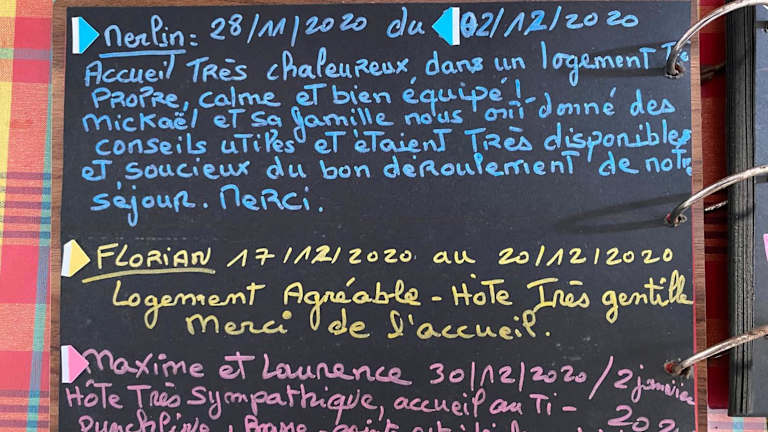 Merlin: 28/11/2020 du 02/12/2020
Accueil Très chaleureux, dans un logement
Propre, calme et bien équipé!
Mickaël et sa famille nous ont donné des
conseils utiles et étaient Très disponibles
et soucieux du bon déroulement de notre
séjour. Merci.
FLORIAN 17/12/2020 au 20/12/2020
Logement Agréable - Hôte Très gentille
Merci de l'accueil.
Maxime et Laurence 30/12/2020 / 2 janvier
Hôte Très Sympathique, accueil au Ti- 202